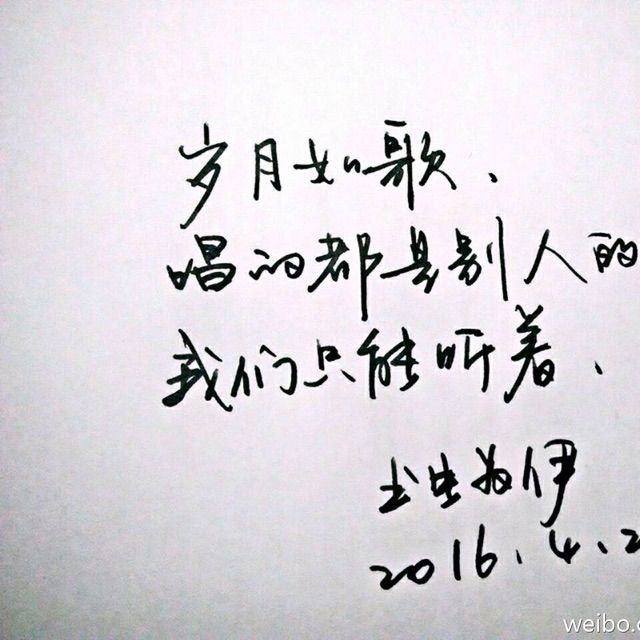 岁月如歌、
唱的都是别人的
我们只能听着、
书生为伊
2016.4.2
weibo.c